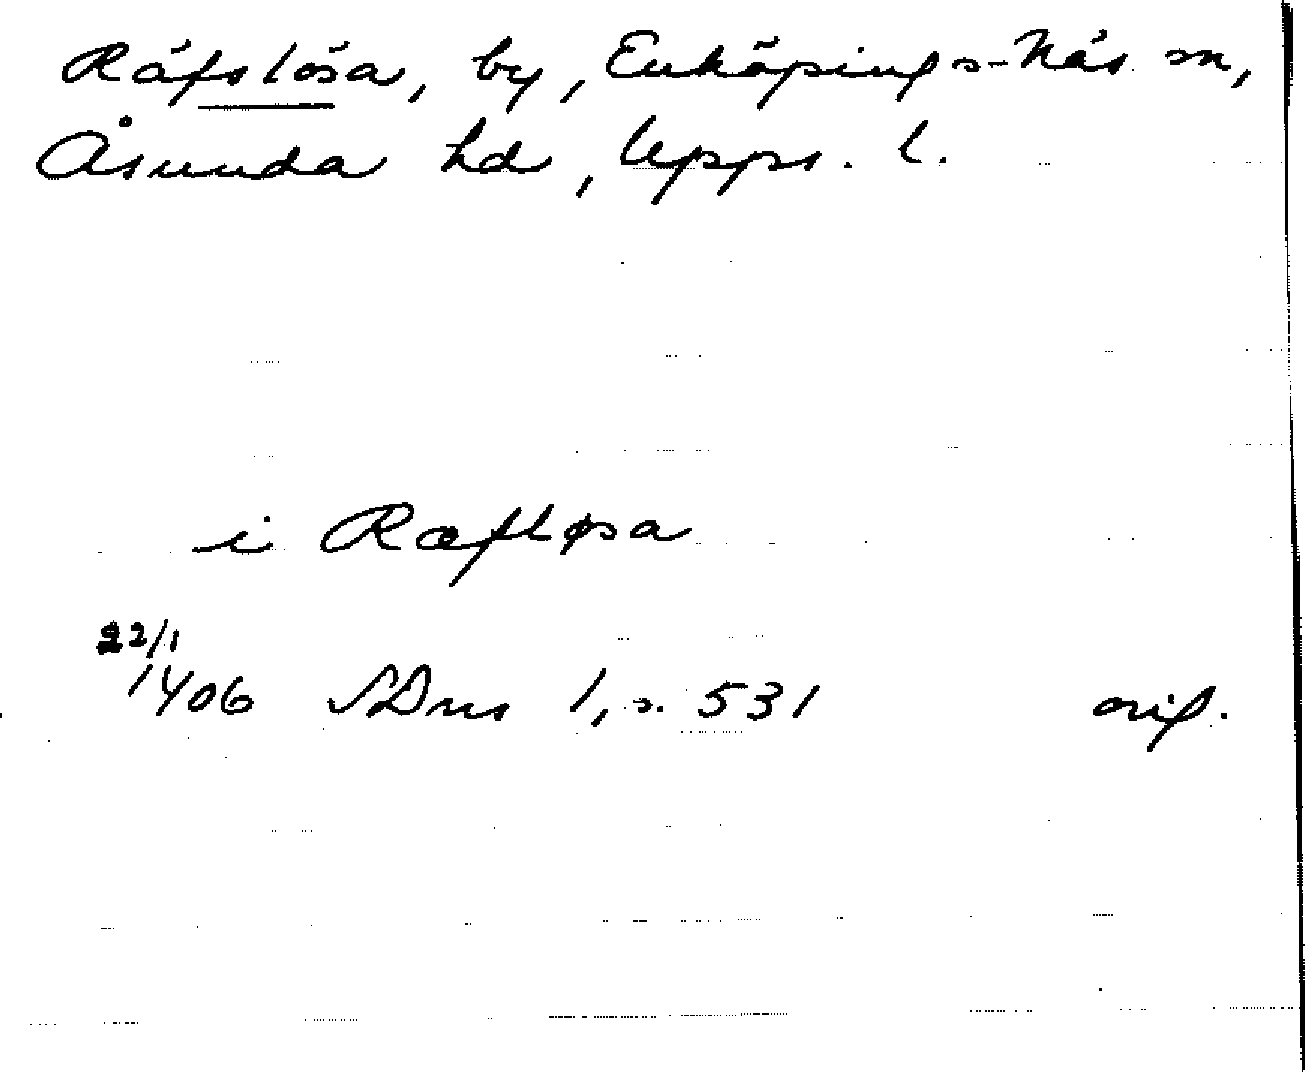 Räfslösa, by, Enköpings-Näs sn,
Åsunda hd, Upps. l.
i Ræfløsa
22/1
1406 SDns 1, s. 531 orig.